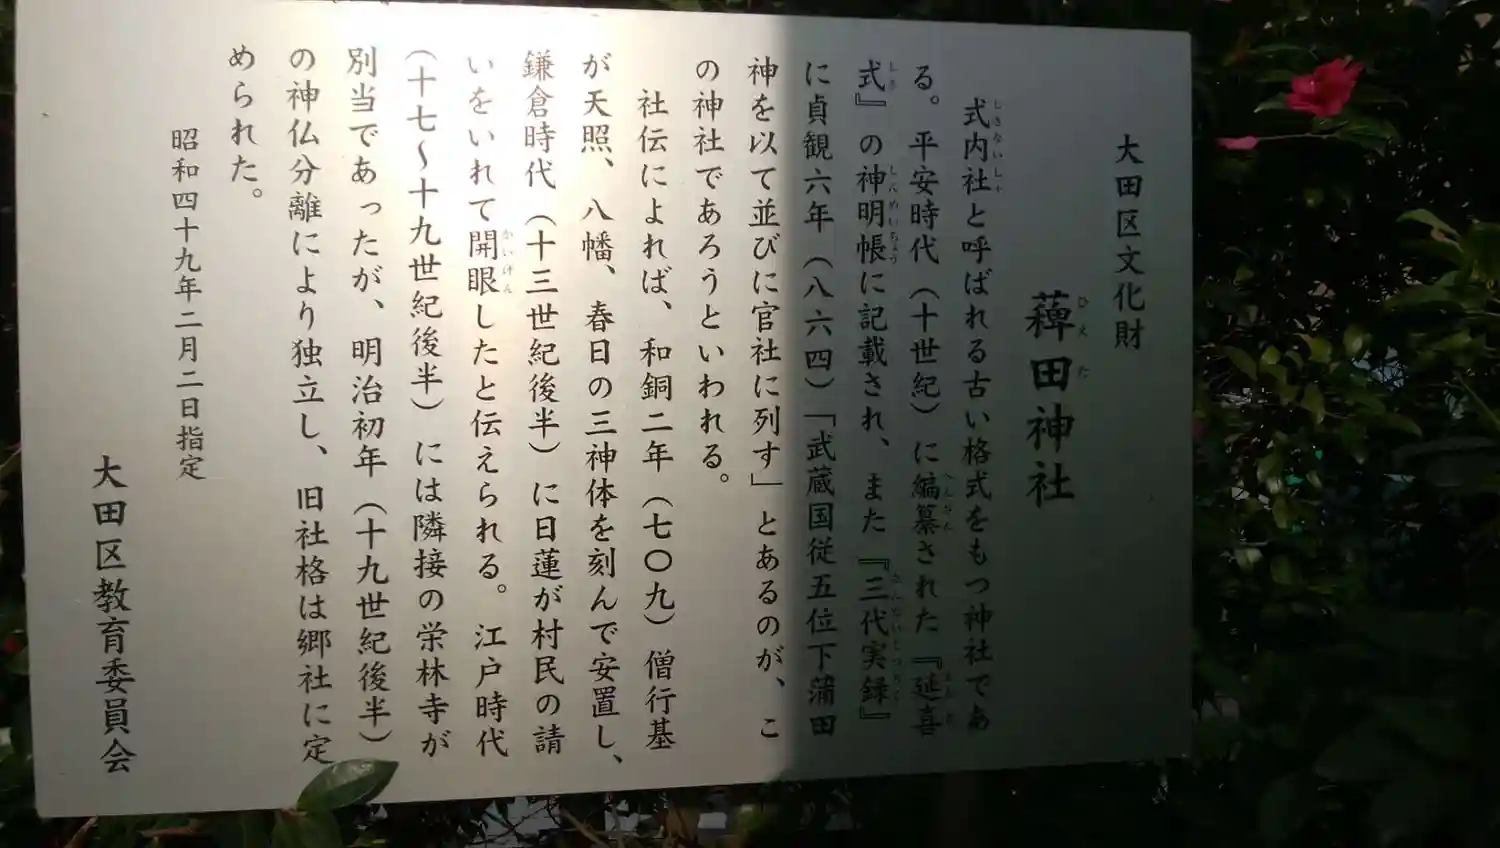 大田区文化財
薭田神社
式内社と呼ばれる古い格式をもつ神社であ
る。平安時代（十世紀）に編纂された『延喜
式』の神明帳に記載され、また『三代実録』
に貞観六年（八六四）「武蔵国従五位下蒲田
神を以て並びに官社に列す」とあるのが、こ
の神社であろうといわれる。
社伝によれば、和銅二年（七〇九）僧行基
が天照、八幡、春日の三神体を刻んで安置し、
鎌倉時代（十三世紀後半）に日蓮が村民の請
いをいれて開眼したと伝えられる。江戸時代
（十七〜十九世紀後半）には隣接の栄林寺が
別当であったが、明治初年（十九世紀後半）
の神仏分離により独立し、旧社格は郷社に定
められた。
昭和四十九年二月二日指定
大田区教育委員会